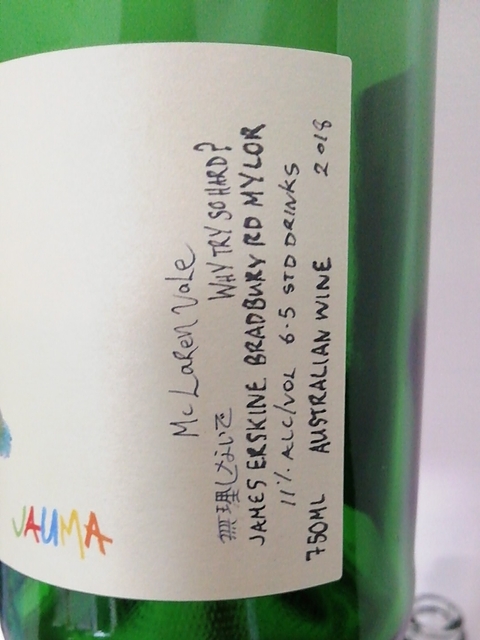 JAUMA
McLaren Vale
無理しないで WHY TRY SO HARD?
JAMES ERSKINE BRADBURY RD MYLOR
11% ALC/VOL 6.5 STD DRINKS
750ML AUSTRALIAN WINE 2018